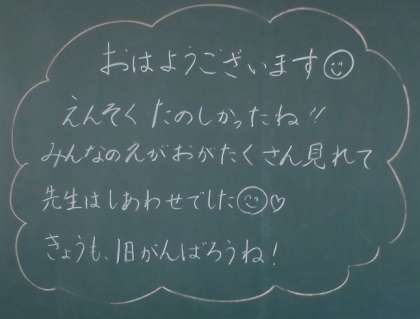 おはようございます
えんそくたのしかったね!!
みんなのえがおがたくさん見れて
先生はしあわせでした♡
きょうも、1日がんばろうね!